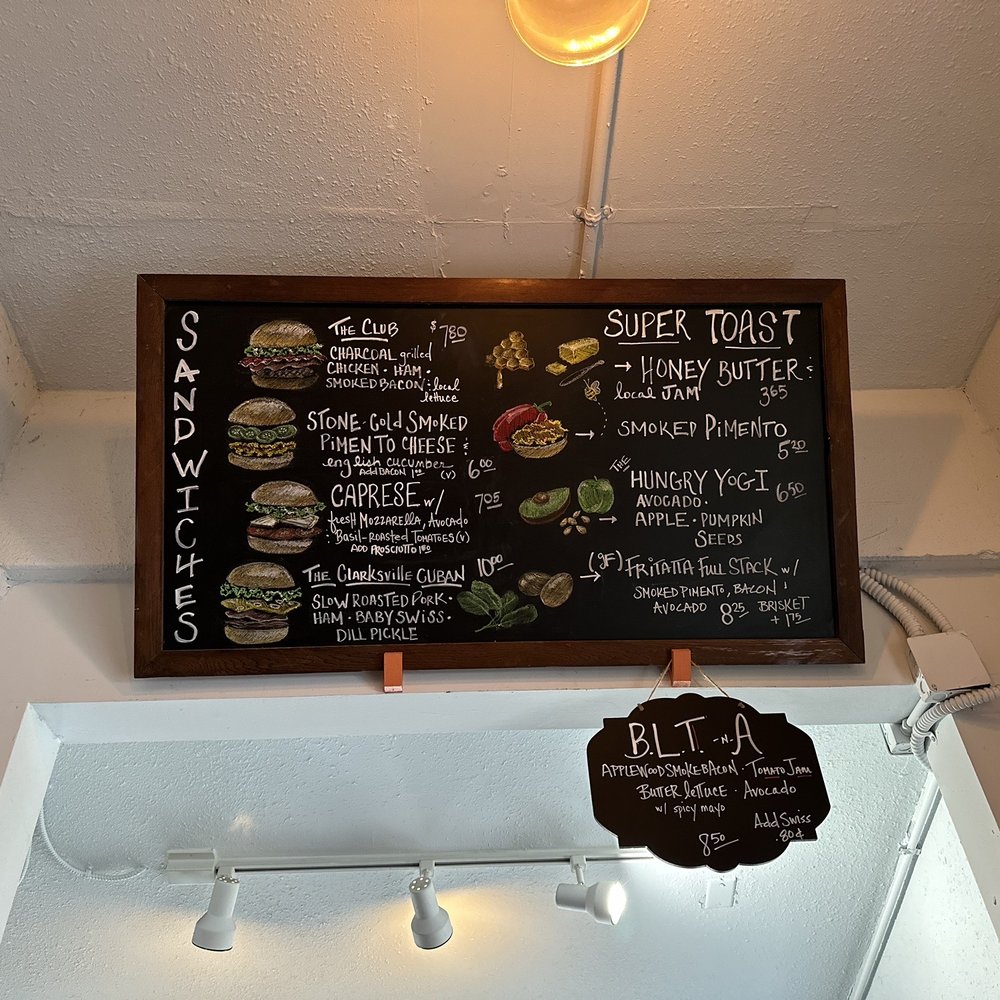 SANDWICHES
THE CLUB $7.80
CHARCOAL grilled
CHICKEN · HAM ·
SMOKED BACON : local
lettuce
STONE-Gold SMOKED
PIMENTO CHEESE :
english cucumber
ADD BACON 1.00 (V) 6.00
CAPRESE w/ 7.05
fresh MOZZARELLA, Avocado
: Basil-Roasted Tomatoes (V)
ADD PROSCIUTTO 1.80
THE Clarksville CUBAN 10.00
SLOW ROASTED PORK ·
HAM · BABY SWISS ·
DILL PICKLE
SUPER TOAST
→ HONEY BUTTER :
local JAM 3.65
→ SMOKED PIMENTO
5.20
THE
HUNGRY YOGI 6.50
AVOCADO ·
→ APPLE · PUMPKIN
SEEDS
→ (gF) FRITATTA FULL STACK w/
SMOKED PIMENTO, BACON +
AVOCADO 8.25 BRISKET
+ 1.75
B.L.T. -N- A
APPLEWOOD SMOKE BACON · TOMATO JAM
BUTTER lETTUCE · Avocado
w/ spicy mayo
Add Swiss
.80¢
8.50